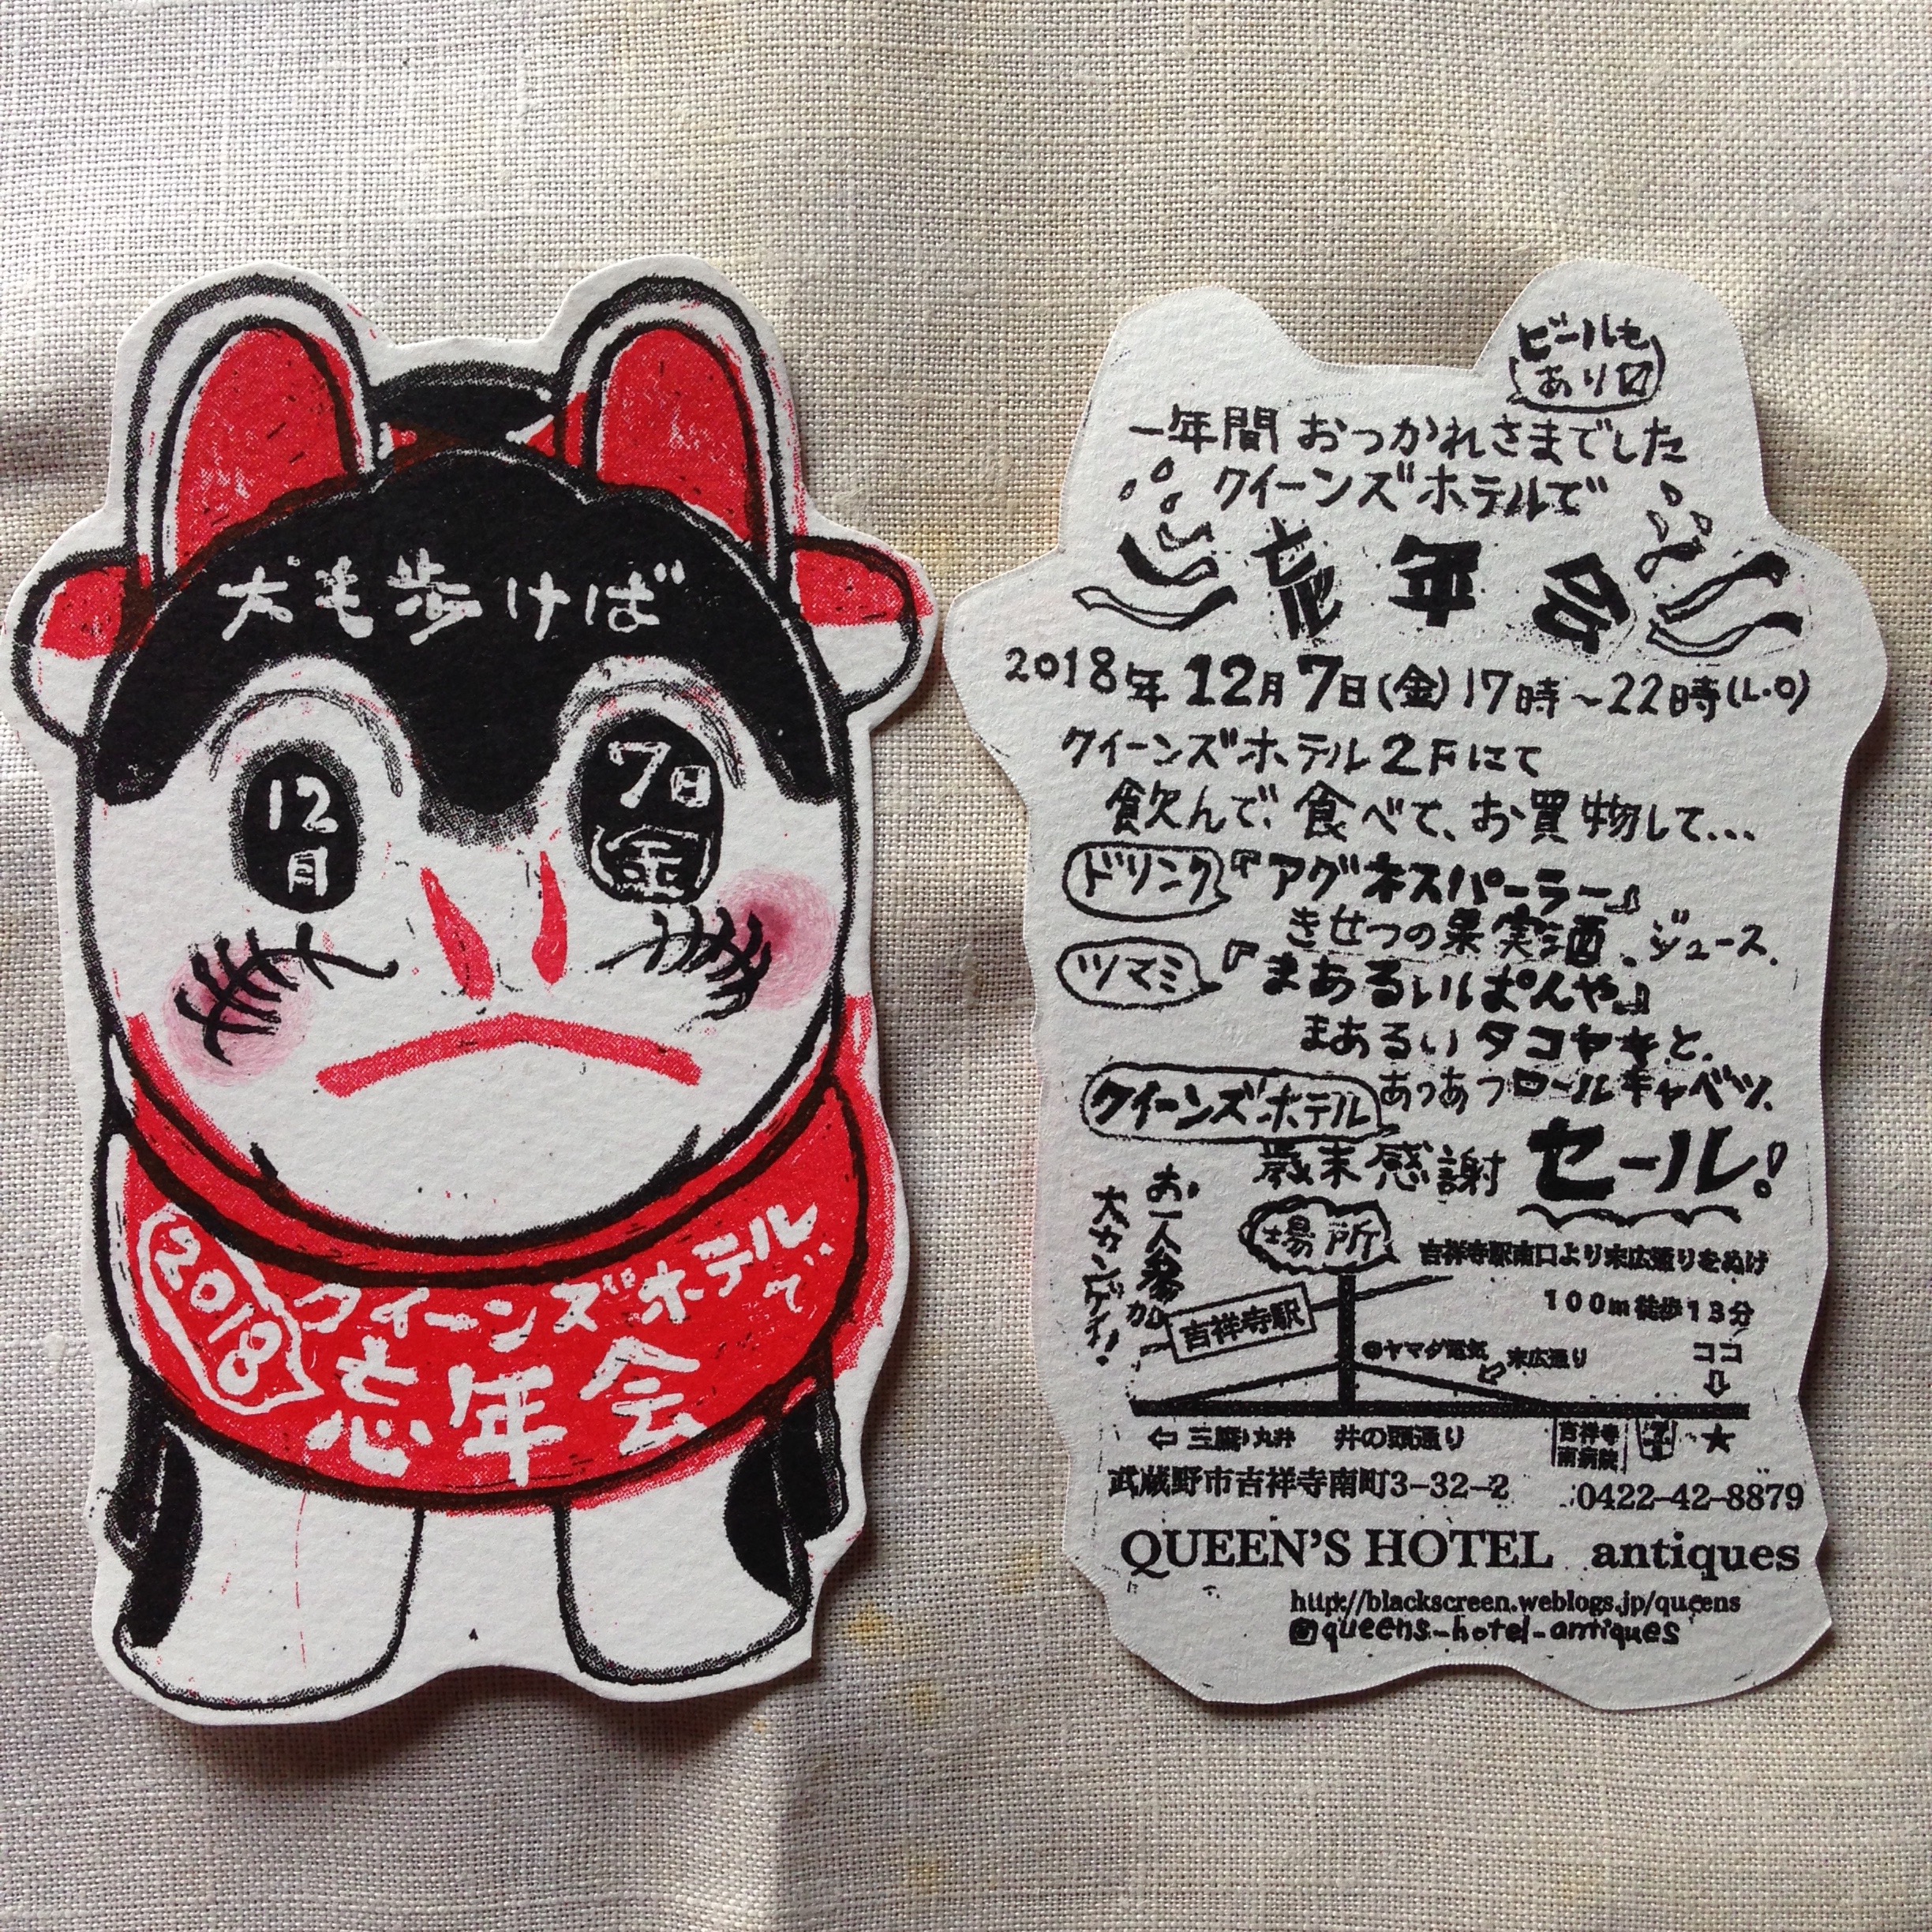 犬も歩けば
12月
7日
金
2018
クイーンズホテルで
忘年会
ビールも
あり〼
一年間おつかれさまでした
クイーンズホテルで
忘年会
2018年12月7日(金)17時~22時(L.O)
クイーンズホテル2Fにて
飲んで、食べて、お買物して...
ドリンク『アグネスパーラー』
きせつの果実酒、ジュース、
ツマミ『まあるいぱんや』
まあるいタコヤキと、
あつあつロールキャベツ、
クイーンズホテル
歳末感謝セール!
お一人参加
大カンゲイ!
場所
吉祥寺駅南口より末広通りをぬけ
100m徒歩13分
吉祥寺駅
●ヤマダ電気
末広通り
ココ
⇩
⇦三鷹
丸井
井の頭通り
吉祥寺
南病院
★
武蔵野市吉祥寺南町3-32-2
0422-42-8879
QUEEN'S HOTEL antiques
http://blackscreen.weblogs.jp/queens
@queens-hotel-antiques